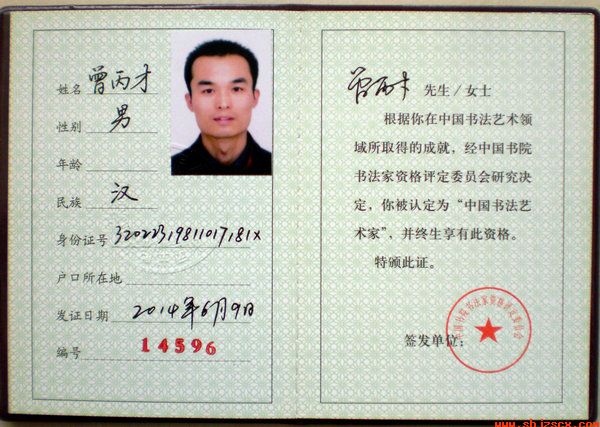 姓名 曾丙才
性别 男
年龄
民族 汉
身份证号 32022319811017181X
户口所在地
发证日期 2014年6月9日
编号 14596
曾丙才 先生/女士
根据你在中国书法艺术领
域所取得的成就，经中国书院
书法家资格评定委员会研究决
定，你被认定为“中国书法艺
术家”，并终生享有此资格。
特颁此证。
签发单位：
中国书院书法家资格评定委员会
www.shjzscx.com